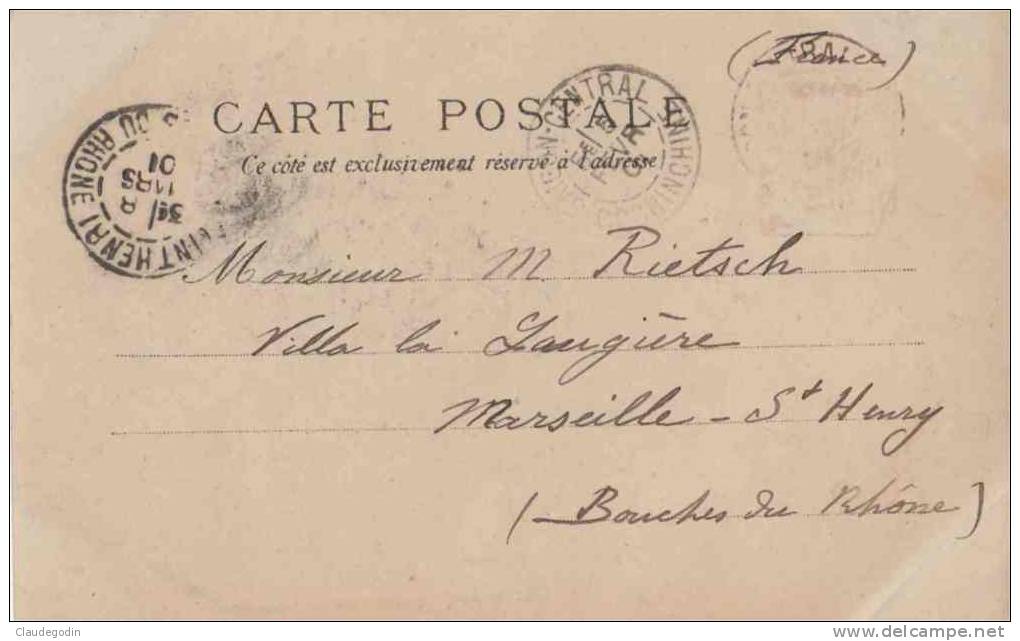 (France)
CARTE POSTALE
Ce côté est exclusivement réservé à l'adresse
SAIGON-CENTRAL
FEVR
SAINT HENRI
BCHES DU RHONE
3E/ 2
MARS
01
Monsieur M Rietsch
Villa la Laugière
Marseille - St Henry
(Bouches du Rhône)
Claudegodin
www.delcampe.net